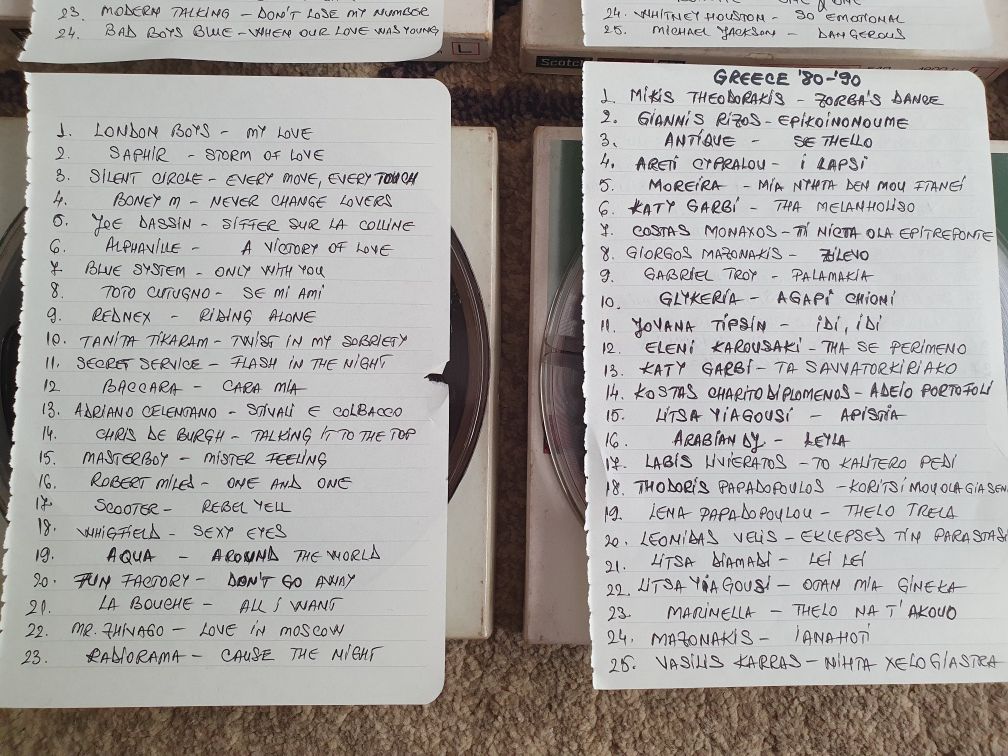 23. MODERN TALKING – DON'T LOSE MY NUMBER
24. BAD BOYS BLUE – WHEN OUR LOVE WAS YOUNG
24. WHITNEY HOUSTON – SO EMOTIONAL
25. MICHAEL JACKSON – DANGEROUS
L
Scotch
1. LONDON BOYS – MY LOVE
2. SAPHIR – STORM OF LOVE
3. SILENT CIRCLE – EVERY MOVE, EVERY TOUCH
4. BONEY M – NEVER CHANGE LOVERS
5. JOE DASSIN – SIFFER SUR LA COLLINE
6. ALPHAVILLE – A VICTORY OF LOVE
7. BLUE SYSTEM – ONLY WITH YOU
8. TOTO CUTUGNO – SE MI AMI
9. REDNEX – RIDING ALONE
10. TANITA TIKARAM – TWIST IN MY SOBRIETY
11. SECRET SERVICE – FLASH IN THE NIGHT
12 BACCARA – CARA MIA
13. ADRIANO CELENTANO – STIVALI E COLBACCO
14. CHRIS DE BURGH – TALKING IT TO THE TOP
15. MASTERBOY – MISTER FEELING
16. ROBERT MILES – ONE AND ONE
17 SCOOTER – REBEL YELL
18. WHIGFIELD – SEXY EYES
19. AQUA – AROUND THE WORLD
20. FUN FACTORY – DON'T GO AWAY
21. LA BOUCHE – ALL I WANT
22. MR. ZHIVAGO – LOVE IN MOSCOW
23. RADIORAMA – CAUSE THE NIGHT
GREECE '80-'90
1. MIKIS THEODORAKIS – ZORBA'S DANCE
2. GIANNIS RIZOS – EPIKOINONOUME
3. ANTIQUE – SE THELLO
4. ARETI CYPRALOU – I LAPSI
5. MOREIRA – MIA NYHTA DEN MOU FTANEI
6. KATY GARBI – THA MELANHOLISO
7. COSTAS MONAXOS – TI NICTA OLA EPITREPONTE
8. GIORGOS MAZONAKIS – ZILEVO
9. GABRIEL TROY – PALAMAKIA
10. GLYKERIA – AGAPI CHIONI
11. YOVANA TIPSIN – IDI, IDI
12. ELENI KAROUSAKI – THA SE PERIMENO
13. KATY GARBI – TA SAVVATORKIRIAKO
14. KOSTAS CHARITODIPLOMENOS – ADEIO PORTOFOLI
15. LITSA YIAGOUSI – APISTIA
16. ARABIAN DJ – LEYLA
17. LABIS LIVIERATOS – TO KALITERO PEDI
18. THODORIS PAPADOPOULOS – KORITSI MOU OLA GIA SEN
19. LENA PAPADOPOULOU – THELO TRELA
20. LEONIDAS VELIS – EKLEPSES TIN PARASTASI
21. LITSA DIAMADI – LEI LEI
22. LITSA YIAGOUSI – OTAN MIA GINEKA
23. MARINELLA – THELO NA T'AKOUO
24. MAZONAKIS – IANAHOTI
25. VASILIS KARRAS – NIHTA XELOGIASTRA